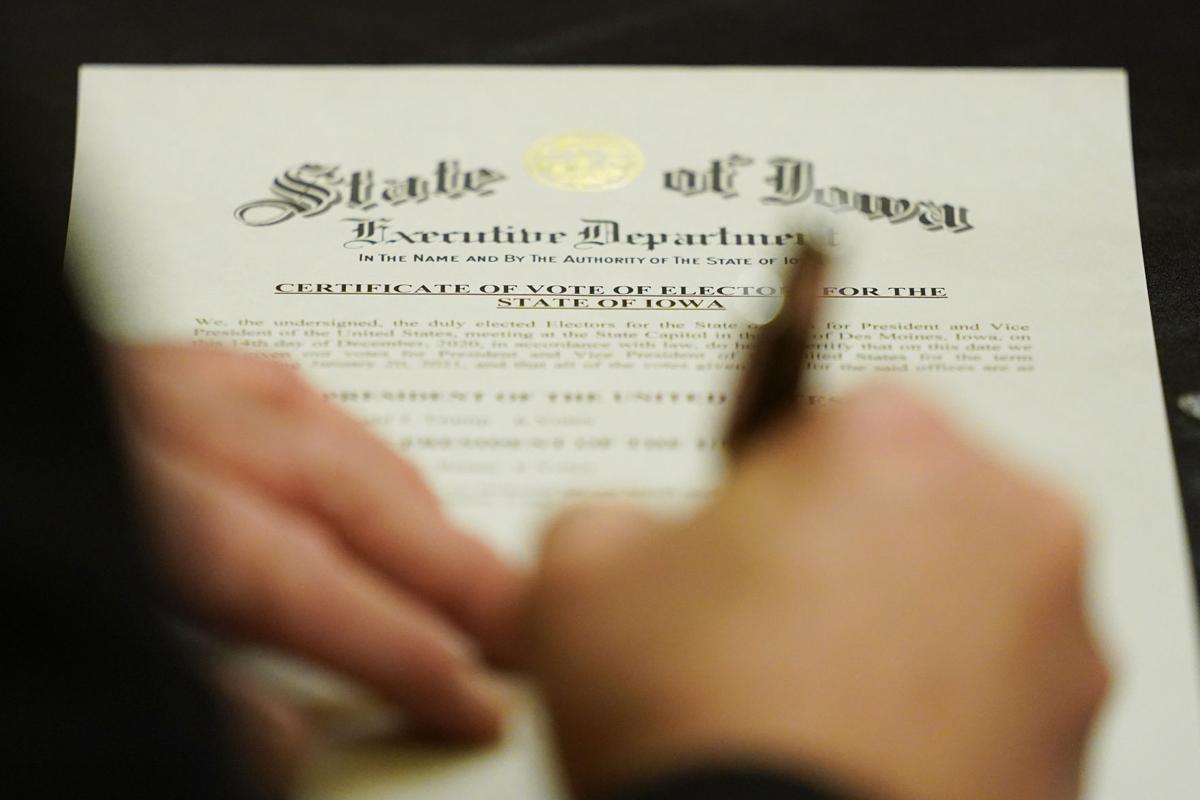 State of Iowa
Executive Department
IN THE NAME AND BY THE AUTHORITY OF THE STATE OF
CERTIFICATE OF VOTE OF FOR THE
STATE OF IOWA
We, the undersigned, the duly elected Electors for the State for President and Vice
President of the United States, meeting at the State Capitol in of Des Moines, Iowa, on
this 14th day of December, 2020, in accordance with law, do certify that on this date we
our votes for President and Vice President of States for the term
January 20, 2021, and that all of the votes given for the said offices are as
PRESIDENT OF THE UNITED
Trump 6 Votes
PRESIDENT OF THE